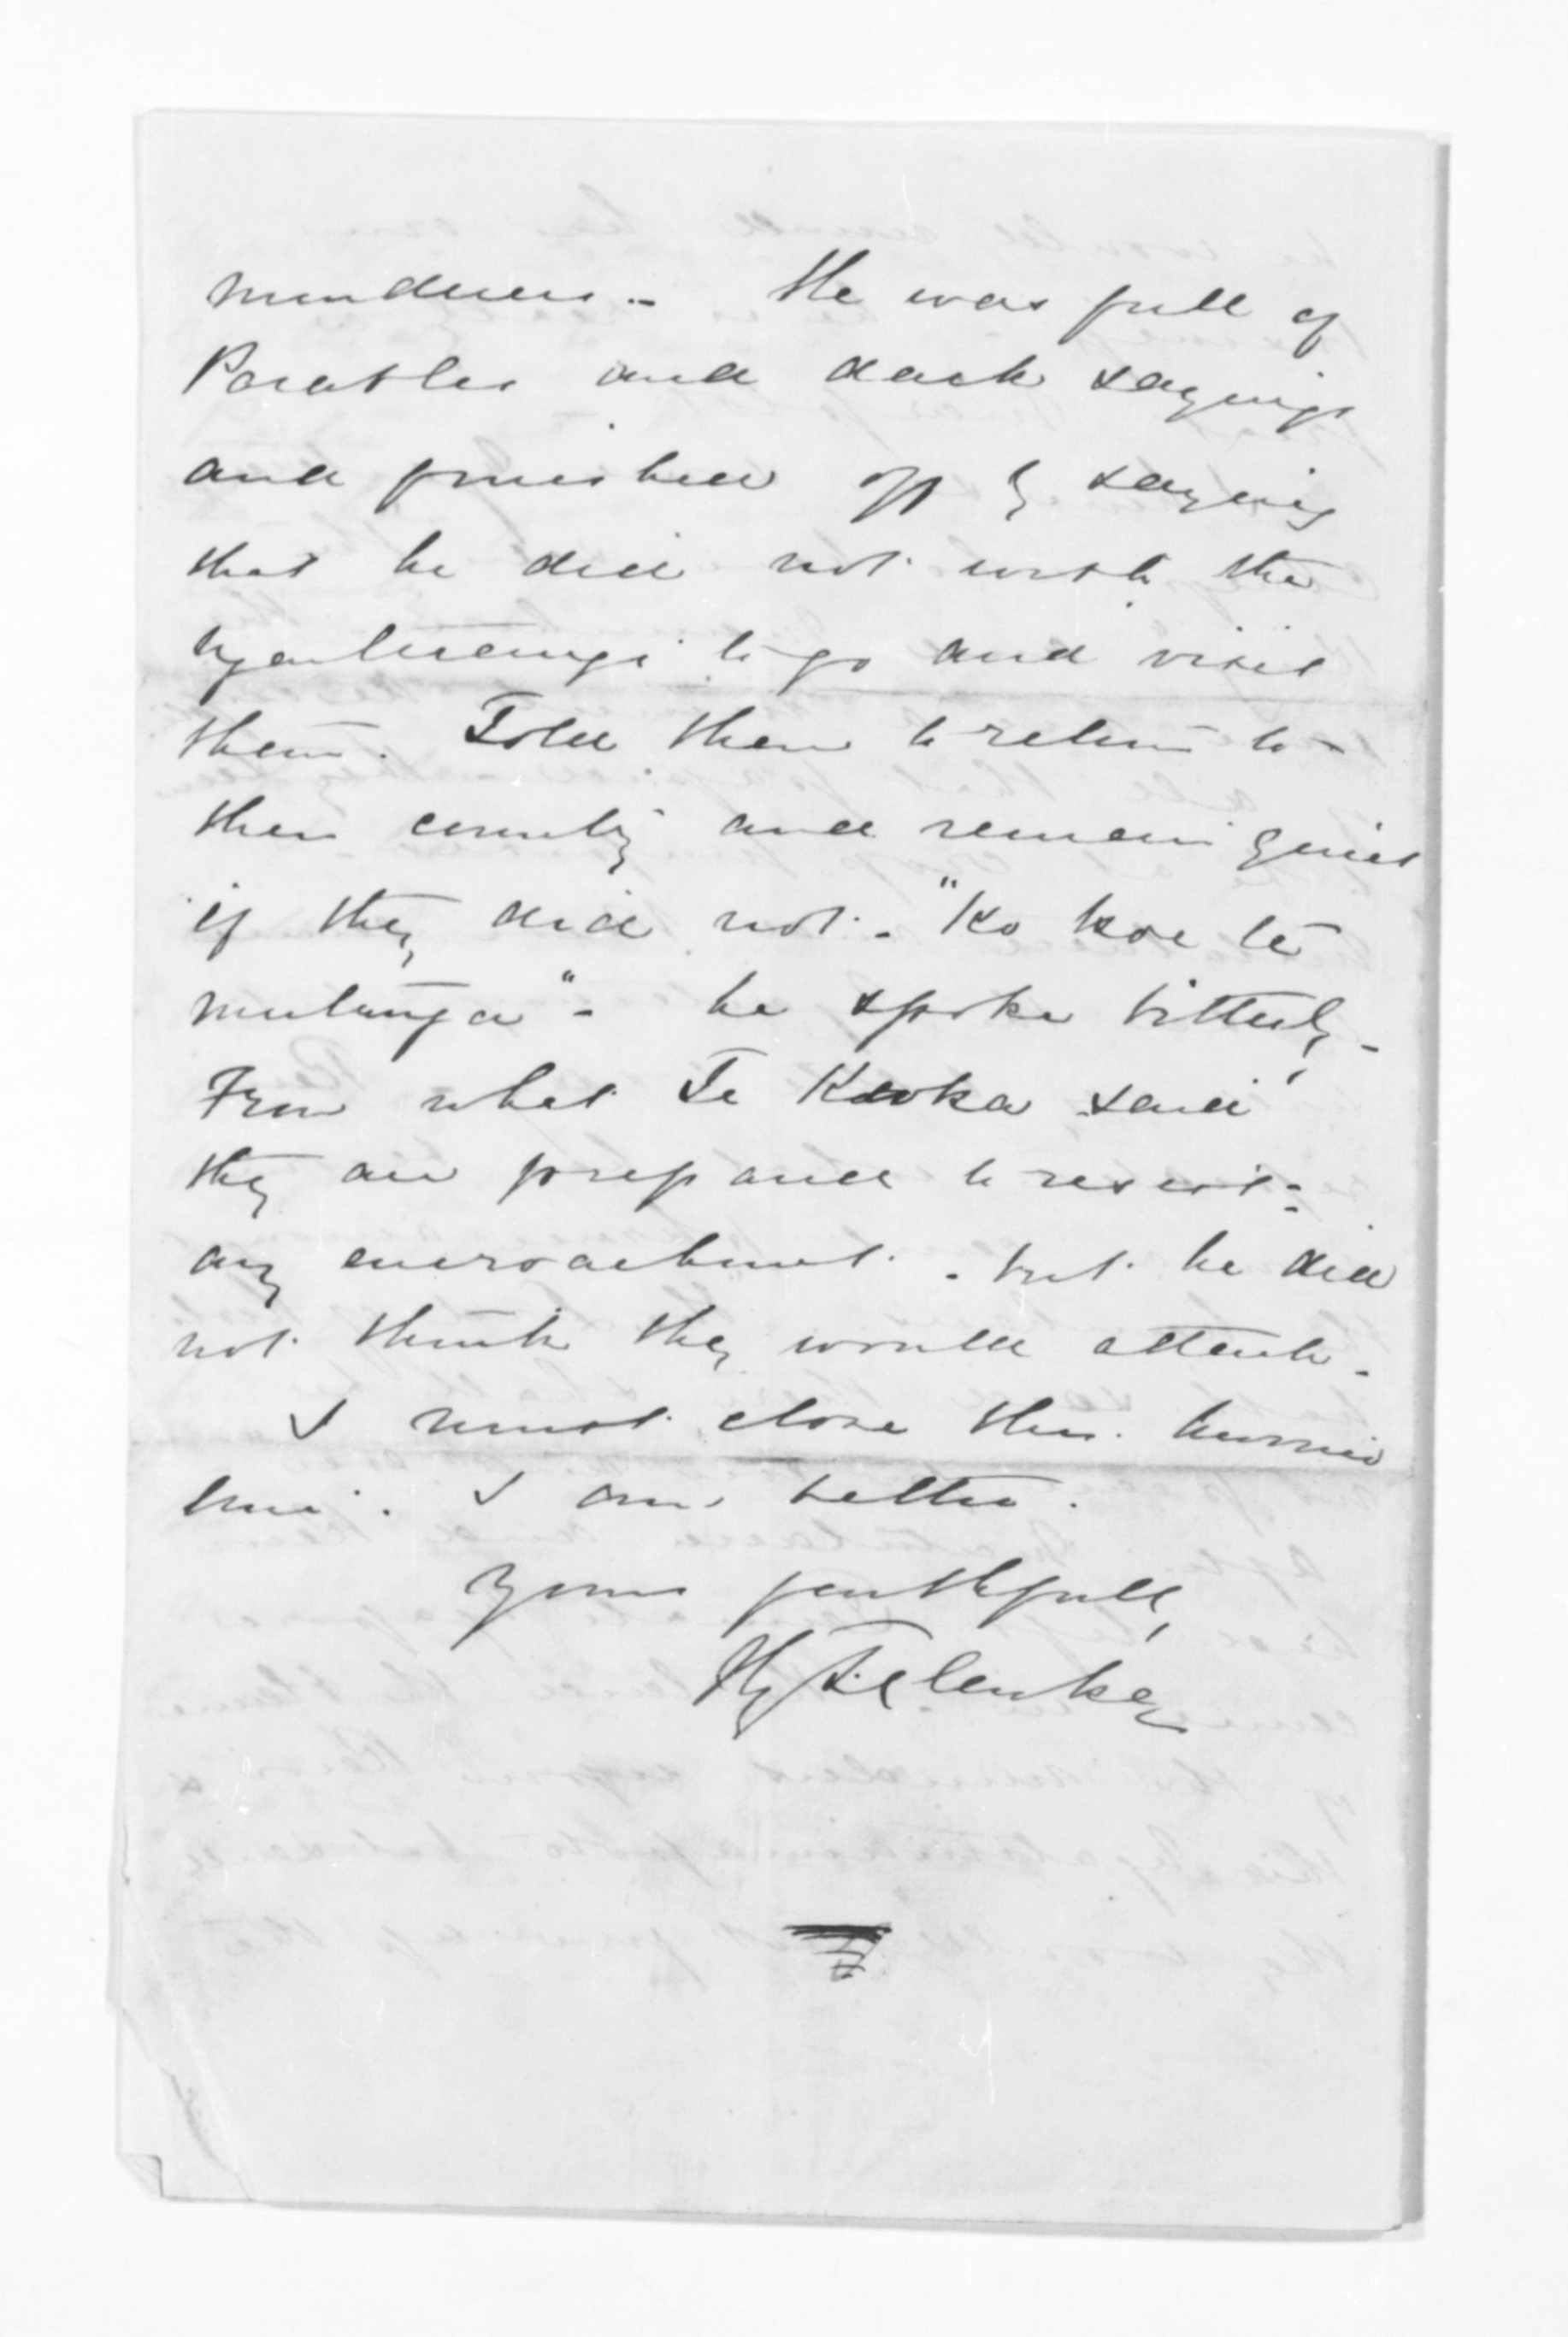 murderers - He was full of
Parables and dark sayings
and finished off by saying
that he did not wish the
Ngaiterangi to go and visit
them. Told them to return to -
their country and remain quiet
if they did not - "Ko koe te
mutunga" - he spoke bitterly -
From what Te Kooka said
they are prepared to resist -
any encroachment - but he did
not think they would attack -
I must close this.
line. I am better.
Yours faithfully
Hy T. Clarke